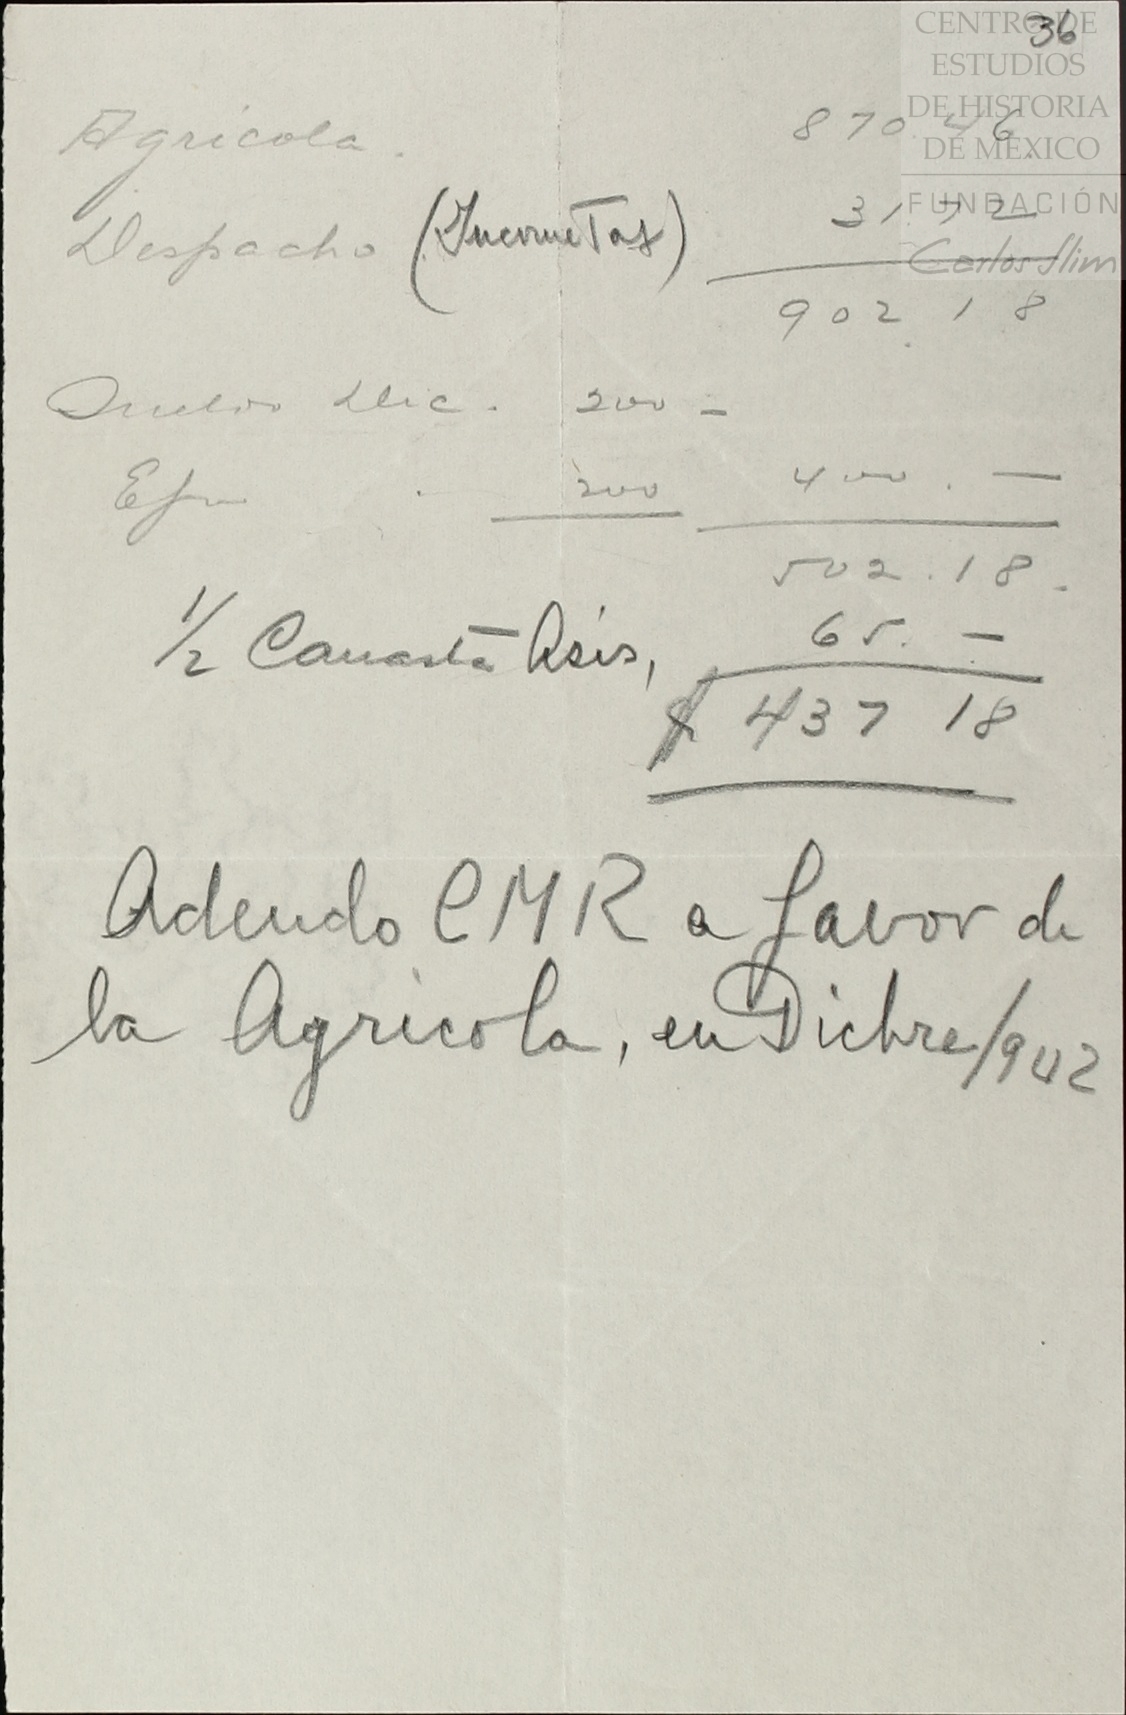 36
CENTRO DE
ESTUDIOS
DE HISTORIA
DE MÉXICO
FUNDACIÓN
Carlos Slim
Agricola. 870.46.
Despacho (Income Tax) 31.72
902 18
Sueldo Dic. 200 –
" 200 400. —
502.18.
1/2 Canasta Asis, 65. –
$ 437 18
Adeudo CMR a favor de
la Agricola, en Dicbre/942